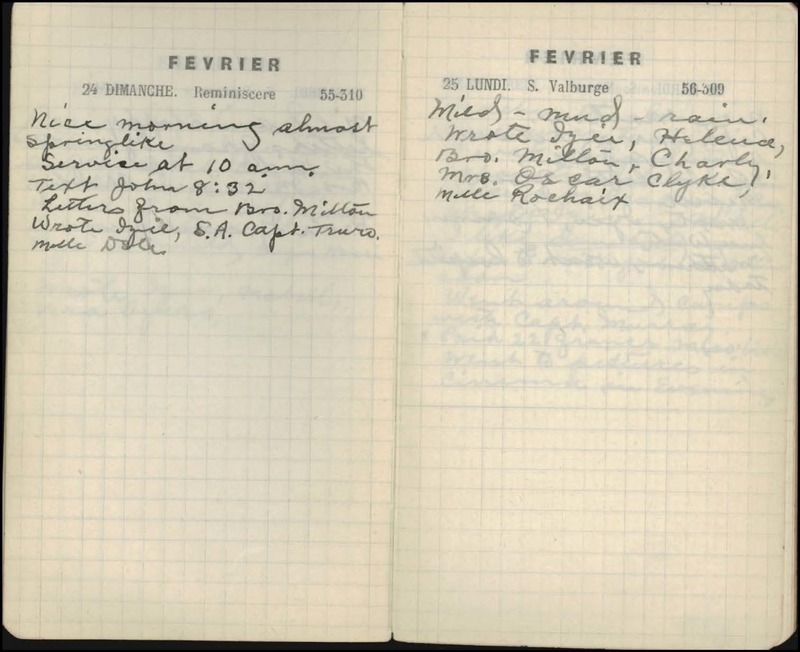 FEVRIER
24 DIMANCHE. Reminiscere 55-310
Nice morning almost
springlike
Service at 10 a.m.
Text John 8:32
Letters from Bro. Milton
Wrote S.A. Capt. Truro.
Mlle
FEVRIER
25 LUNDI. S. Valburge 56-309
Mild - mud - rain.
Wrote Helena,
Bro. Milton, Charly,
Mrs. Oscar
Mlle Rochaix